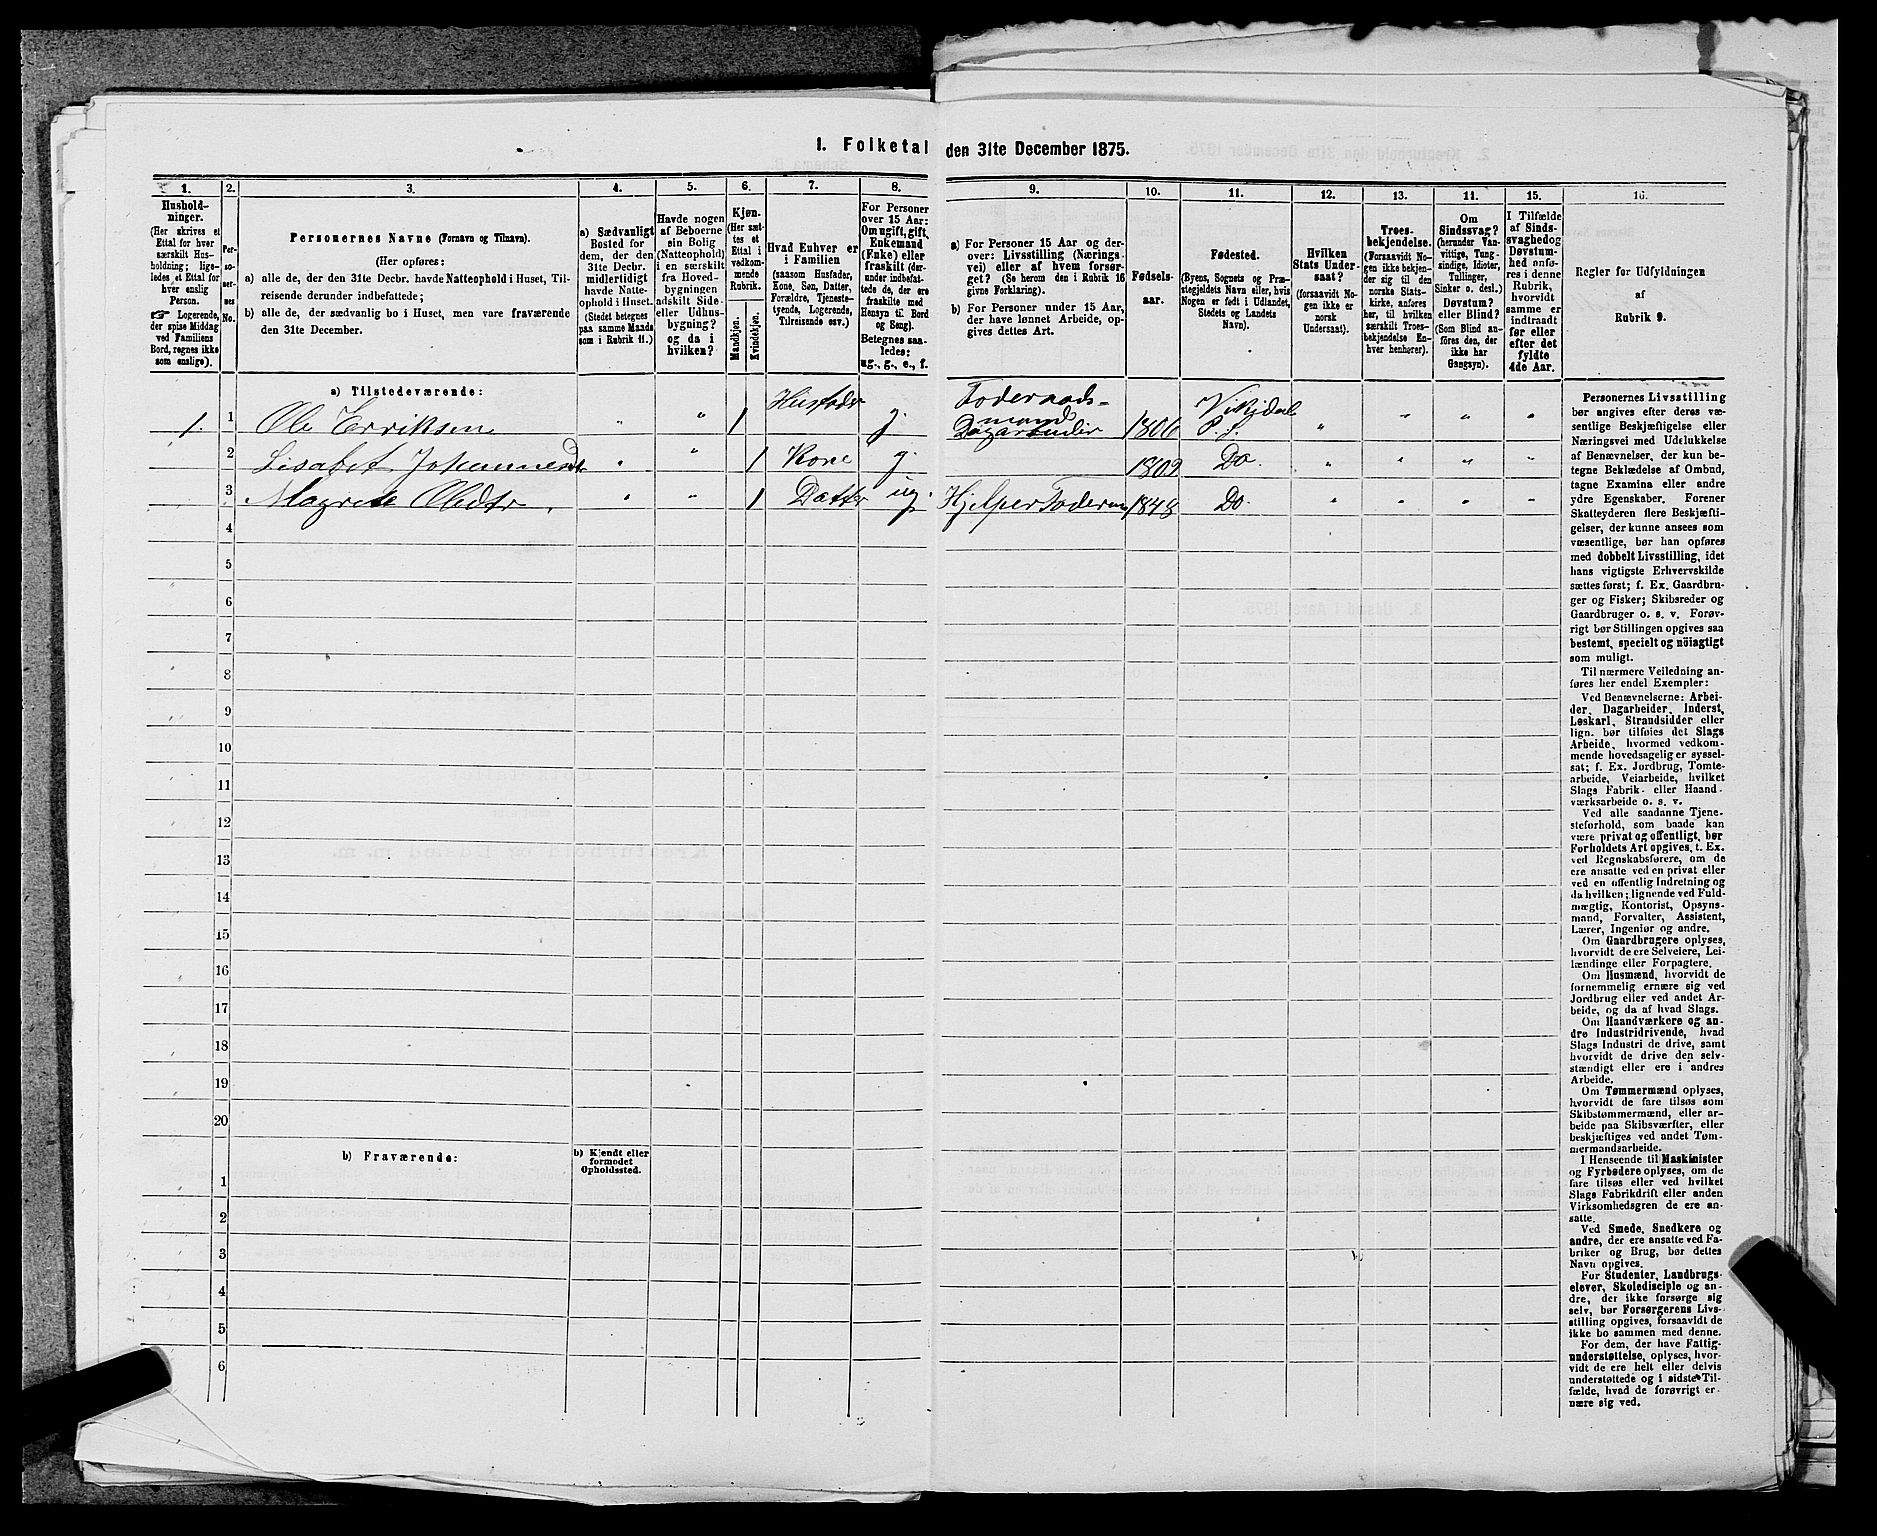 1. Folketal den 31te December 1875.
1. 2. 3. 4. 5. 6. 7. 8. 9. 10. 11. 12. 13. 14. 15. 16.
Hushold-
ninger.
(Her skrives et
Ettal for hver
særskilt Hus-
holdning; lige-
ledes et Ettal for
hver enslig
Person.
☞ Logerende,
der spise Middag
ved Familiens
Bord, regnes ikke
som enslige).
Per-
so-
ner-
nes
No.
Personernes Navne (Fornavn og Tilnavn).
(Her opføres:
a) alle de, der den 31te Decbr. havde Natteophold i Huset, Til-
reisende derunder indbefattede;
b) alle de, der sædvanlig bo i Huset, men vare fraværende
den 31te December.
a) Sædvanligt
Bosted for
dem, der den
31te Decbr.
midlertidigt
havde Natte-
ophold i Huset.
(Stedet betegnes
paa samme Maade
som i Rubrik 11.)
Havde nogen
af Beboerne
sin Bolig
(Natteophold)
i en særskilt
fra Hoved-
bygningen
adskilt Side-
eller Udhus-
bygning?
og da i
hvilken?
Kjøn.
(Her sæt-
tes et
Ettal i
vedkom-
mende
Rubrik.
Mandkjøn.
Kvindekjøn.
Hvad Enhver er
i Familien
(saasom Husfader,
Kone, Søn, Datter,
Forældre, Tjeneste-
tyende, Logerende,
Tilreisende osv.)
For Personer
over 15 Aar:
Om ugift, gift,
Enkemand
(Enke) eller
fraskilt (der-
under indbefat-
tede de, der ere
fraskilte med
Hensyn til Bord
og Seng).
Betegnes saa-
ledes:
ug., g., e., f.
a) For Personer 15 Aar og der-
over: Livsstilling (Nærings-
vei) eller af hvem forsør-
get? (Se herom den i Rubrik 16
givne Forklaring).
b) For Personer under 15 Aar,
der have lønnet Arbeide, op-
gives dettes Art.
Fødsels-
aar.
Fødested.
(Byens, Sognets og Præ-
stegjeldets Navn eller, hvis
Nogen er født i Udlandet,
Stedets og Landets
Navn).
Hvilken
Stats Under-
saat?
(forsaavidt No-
gen ikke er
norsk
Undersaat).
Troes-
bekjendelse.
(Forsaavidt No-
gen ikke bekjen-
der sig til den
norske Stats-
kirke, anføres
her, til hvilken
særskilt Troes-
bekjendelse En-
hver henhører).
Om
Sindssvag?
(herunder Van-
vittige, Tung-
sindige, Idioter,
Tullinger,
Sinker o. desl.)
Døvstum?
eller Blind?
(Som Blind an-
føres den, der
ikke har
Gangsyn).
I Tilfælde
af Sinds-
svaghed og
Døvstum-
hed anfø-
res i denne
Rubrik,
hvorvidt
samme er
indtraadt
før eller
efter det
fyldte
4de Aar.
Regler for Udfyldningen
af
Rubrik 9.
a) Tilstedeværende:
1. 1 Ole Erriksen " " 1 Husfader g. Foderaads-
mand
Dagarbeider 1806 Vikidal
P. S. " " " "
2 Lisabet Johannesdt " " 1 Kone g. 1809 Do. " " " "
3 Magrete Olsdtr " " 1 Datter ug. Hjelper Foderm 1848 Do. " " " "
4
5
6
7
8
9
10
11
12
13
14
15
16
17
18
19
20
b) Fraværende:
b) Kjendt eller
formodet
Opholdssted.
1
2
3
4
5
6
Personernes Livsstilling
bør angives efter deres væ-
sentlige Beskjæftigelse eller
Næringsvei med Udelukkelse
af Benævnelser, der kun be-
tegne Beklædelse af Ombud,
tagne Examina eller andre
ydre Egenskaber. Forener
Skatteyderen flere Beskjæfti-
gelser, der kunne ansees som
væsentlige, bør han opføres
med dobbelt Livsstilling, idet
hans vigtigste Erhvervskilde
sættes først; f. Ex. Gaardbru-
ger og Fisker; Skibsreder og
Gaardbruger o. s. v. Forøv-
rigt bør Stillingen opgives saa
bestemt, specielt og nöiagtigt
som muligt.
Til nærmere Veiledning an-
føres her endel Exempler:
Ved Benævnelserne: Arbei-
der, Dagarbeider, Inderst,
Løskarl, Strandsidder eller
lign. bør tilføies det Slags
Arbeide, hvormed vedkom-
mende hovedsagelig er syssel-
sat; f. Ex. Jordbrug, Tomte-
arbeide, Veiarbeide, hvilket
Slags Fabrik- eller Haand-
værksarbeide o. s. v.
Ved alle saadanne Tjene-
steforhold, som baade kan
være privat og offentligt, bør
Forholdets Art opgives, t. Ex.
ved Regnskabsførere, om de
ere ansatte ved en privat eller
ved en offentlig Indretning og
da hvilken; lignende ved Fuld-
mægtig, Kontorist, Opsyns-
mand, Forvalter, Assistent,
Lærer, Ingeniør og andre.
Om Gaardbrugere oplyses,
hvorvidt de ere Selveiere, Lei-
lændinge eller Forpagtere.
Om Husmænd, hvorvidt de
fornemmelig ernære sig ved
Jordbrug eller ved andet Ar-
beide, og da af hvad Slags.
Om Haandværkere og an-
dre Industridrivende, hvad
Slags Industri de drive, samt
hvorvidt de drive den selv-
stændigt eller ere i andres
Arbeide.
Om Tømmermænd oplyses,
hvorvidt de fare tilsøs som
Skibstømmermænd, eller ar-
beide paa Skibsværfter, eller
beskjæftiges ved andet Tøm-
mermandsarbeide.
I Henseende til Maskinister
og Fyrbødere oplyses, om de
fare tilsøs eller ved hvilket
Slags Fabrikdrift eller anden
Virksomhedsgren de ere an-
satte.
Ved Smede, Snedkere og
andre, der ere ansatte ved Fa-
briker og Brug, bør dettes
Navn opgives.
For Studenter, Landbrugs-
elever, Skoledisciple og an-
dre, der ikke forsørge sig
selv, bør Forsørgerens Livs-
stilling opgives, forsaavidt de
ikke bo sammen med denne.
For dem, der have Fattig-
understøttelse, oplyses, hvor-
vidt de ere helt eller delvis
understøttede og i sidste Til-
fælde, hvad de forøvrigt er-
nære sig ved.